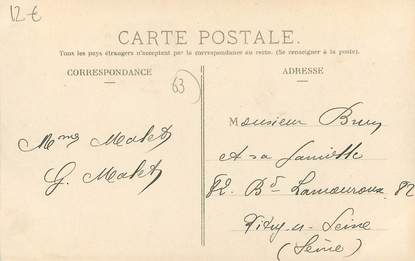 12€
CARTE POSTALE.
Tous les pays étrangers n'acceptent pas la correspondance au recto. (Se renseigner à la poste).
CORRESPONDANCE
ADRESSE
63
Monsieur Brun
Mmes Malet
et sa famille
G. Malet
82. Bd. Lamouroux 82
Vitry-s-Seine
(Seine)